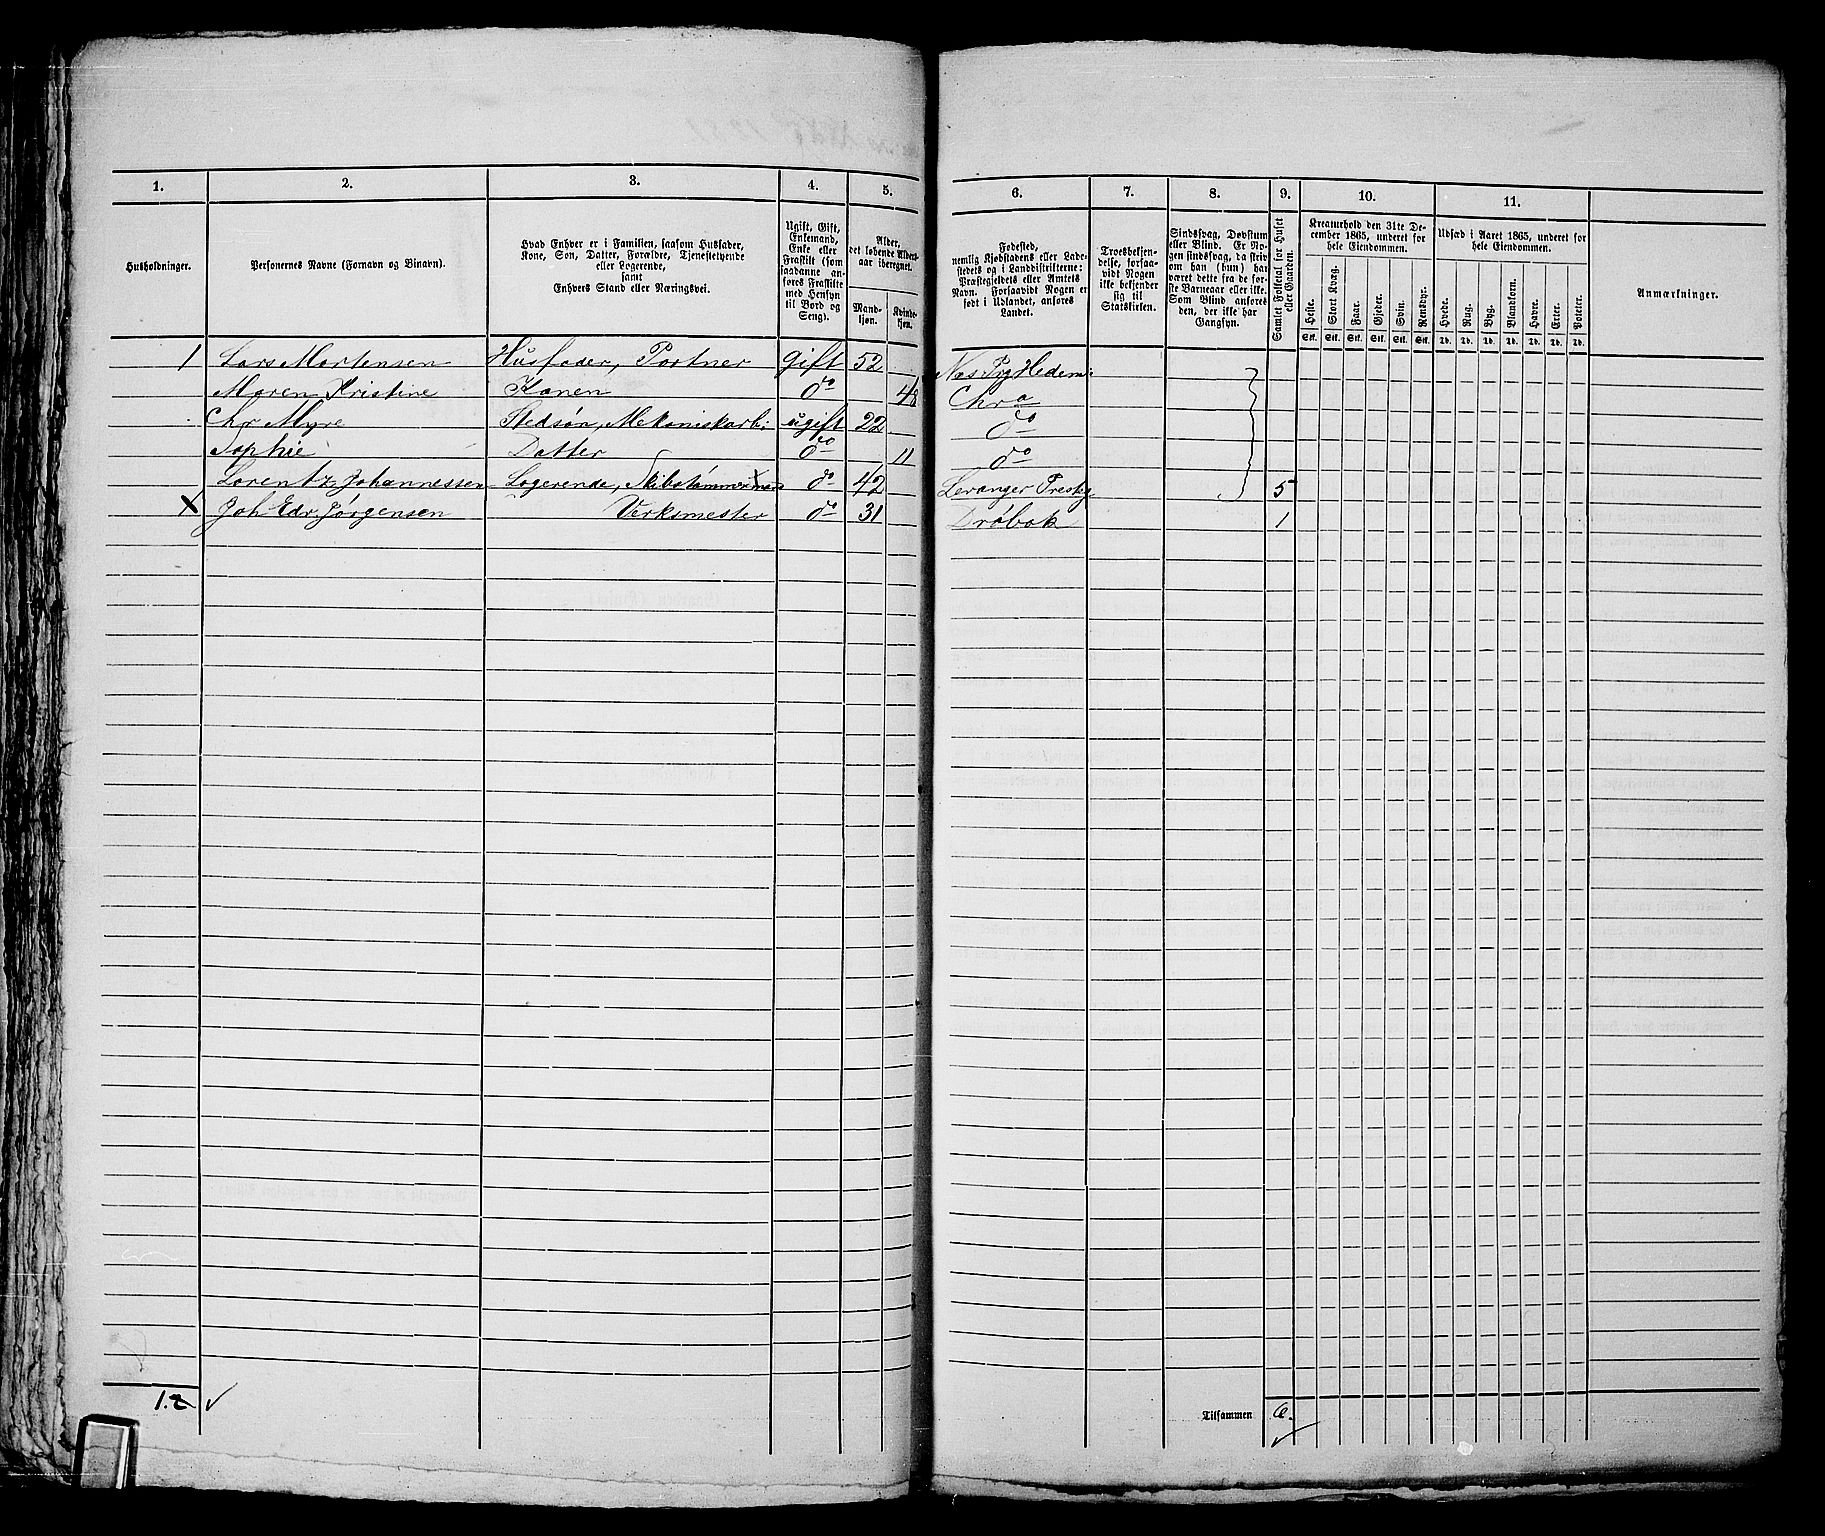 1. 2. 3. 4. 5. 6. 7. 8. 9. 10. 11.
Husholdninger.
Personernes Navne (Fornavn og Binavn).
Hvad Enhver er i Familien, saasom Husfader, Kone, Søn, Datter, Forældre, Tjenestetyende eller Logerende, samt Enhvers Stand eller Næringsvei.
Ugift, Gift, Enkemand, Enke eller Fraskilt (som saadanne anføres Fraskilte med Hensyn til Bord og Seng).
Alder, det løbende Aldersaar iberegnet.
Mandkjøn. Kvindekjøn.
Fødested, nemlig Kjøbstadens eller Ladestedets og i Landdistrikterne: Præstegjeldets eller Amtets Navn. Forsaavidt Nogen er født i Udlandet, anføres Landet.
Troesbekjendelse, forsaavidt Nogen ikke bekjender sig til Statskirken.
Sindssvag, Døvstum eller Blind. Er Nogen sindssvag, da skriv om han (hun) har været dette fra de første Barneaar eller ikke. Som Blind anføres den, der ikke har Gangsyn.
Samlet Folketal for Huset eller Gaarden.
Kreaturhold den 31te December 1865, underet for hele Eiendommen.
Heste. Stort Kvæg. Faar. Gjeder. Svin. Rensdyr.
Stk. Stk. Stk. Stk. Stk. Stk.
Udsæd i Aaret 1865, underet for hele Eiendommen.
Hvede. Rug. Byg. Blandkorn. Havre. Erter. Poteter.
Td. Td. Td. Td. Td. Td. Td.
Anmærkninger.
1 Lars Mortensen Husfader, Portner Gift 52 Næs Prg Hedem:
Maren Kristine Konen do 48 Chra
Chr Myre Stedsøn, Mekaniskarb: ugift 22 do
Sophie Datter do 11 do
Lorentz Johannessen Logerende, Skibstømmermand do 42 Levanger Prestg 5
X Joh Edv. Jørgensen Verksmester do 31 Drøbak 1
1.2 ✓
Tilsammen 6. ✓